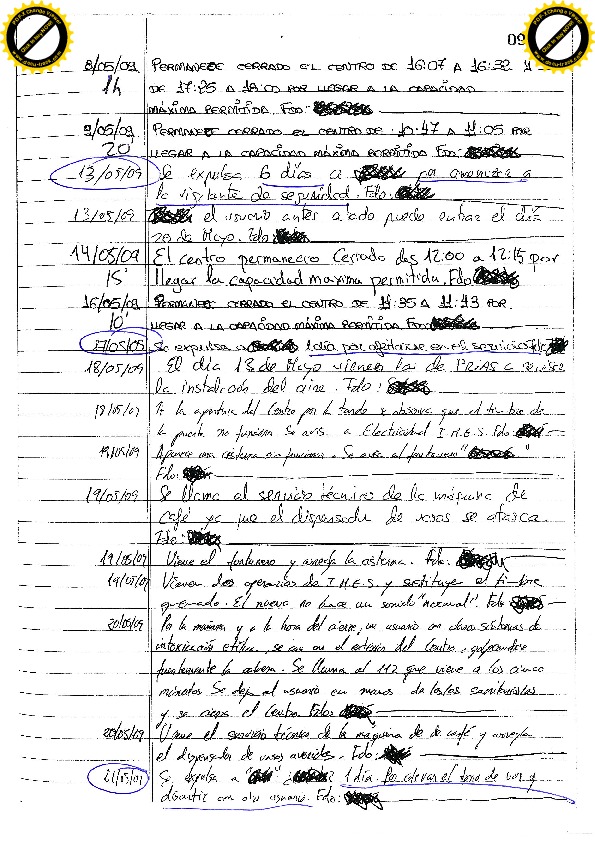 09
8/05/09 PERMANECE CERRADO EL CENTRO DE 16:07 A 16:32 Y
1h DE 17:25 A 18:00 POR LLEGAR A LA CAPACIDAD
MÁXIMA PERMITIDA. Fdo:
9/05/09 PERMANECE CERRADO EL CENTRO DE 10:47 A 11:05 POR
20' LLEGAR A LA CAPACIDAD MÁXIMA PERMITIDA Fdo:
13/05/09 Se expulsa 6 días a por amenizar a
la vigilante de seguridad. Fdo:
13/05/09 el usuario antes citado puede entrar el día
20 de Mayo. Fdo:
14/05/09 El centro permanecio Cerrado das 12:00 a 12:15 por
15' llegar la capacidad maxima permitida. Fdo
16/05/09 PERMANECE CERRADO EL CENTRO DE 11:35 A 11:43 POR
10' LLEGAR A LA CAPACIDAD MÁXIMA PERMITIDA Fdo:
17/05/09 Se expulsa a 1 dia por en el servicio Fdo
18/05/09 El día 13 de Mayo vienen los de a revisar
la instalación del aire. Fdo:
18/05/09 A la apertura del Centro por la tarde se observa que el timbre de
la puerta no funciona Se avisa a Electricidad I.M.E.S. Fdo:
19/05/09 Aparece una cisterna sin funcionar. Se avisa al fontanero " "
Fdo:
19/05/09 Se llama al servicio técnico de la máquina de
café ya que el dispensador de vasos se atasca.
Fdo:
19/05/09 Viene el fontanero y arregla la cisterna. Fdo:
19/05/09 Vienen dos operarios de I.M.E.S. y sustituyen el timbre
quemado. El nuevo no hace un sonido "normal". Fdo
20/05/09 Por la mañana y a la hora del cierre, un usuario con claros síntomas de
intoxicación etílica, se cae en el exterior del Centro, golpeandose
fuertemente la cabeza. Se llama al 112 que viene a los cinco
minutos Se deja al usuario en manos de los/las sanitarios/as
y se cierra el Centro. Fdo:
20/05/09 Viene el servicio técnico de la máquina de de café y arregla
el dispensador de vasos averiado. Fdo:
21/05/09 Se expulsa a 1 día. Por elevar el tono de voz y
discutir con otro usuario. Fdo: